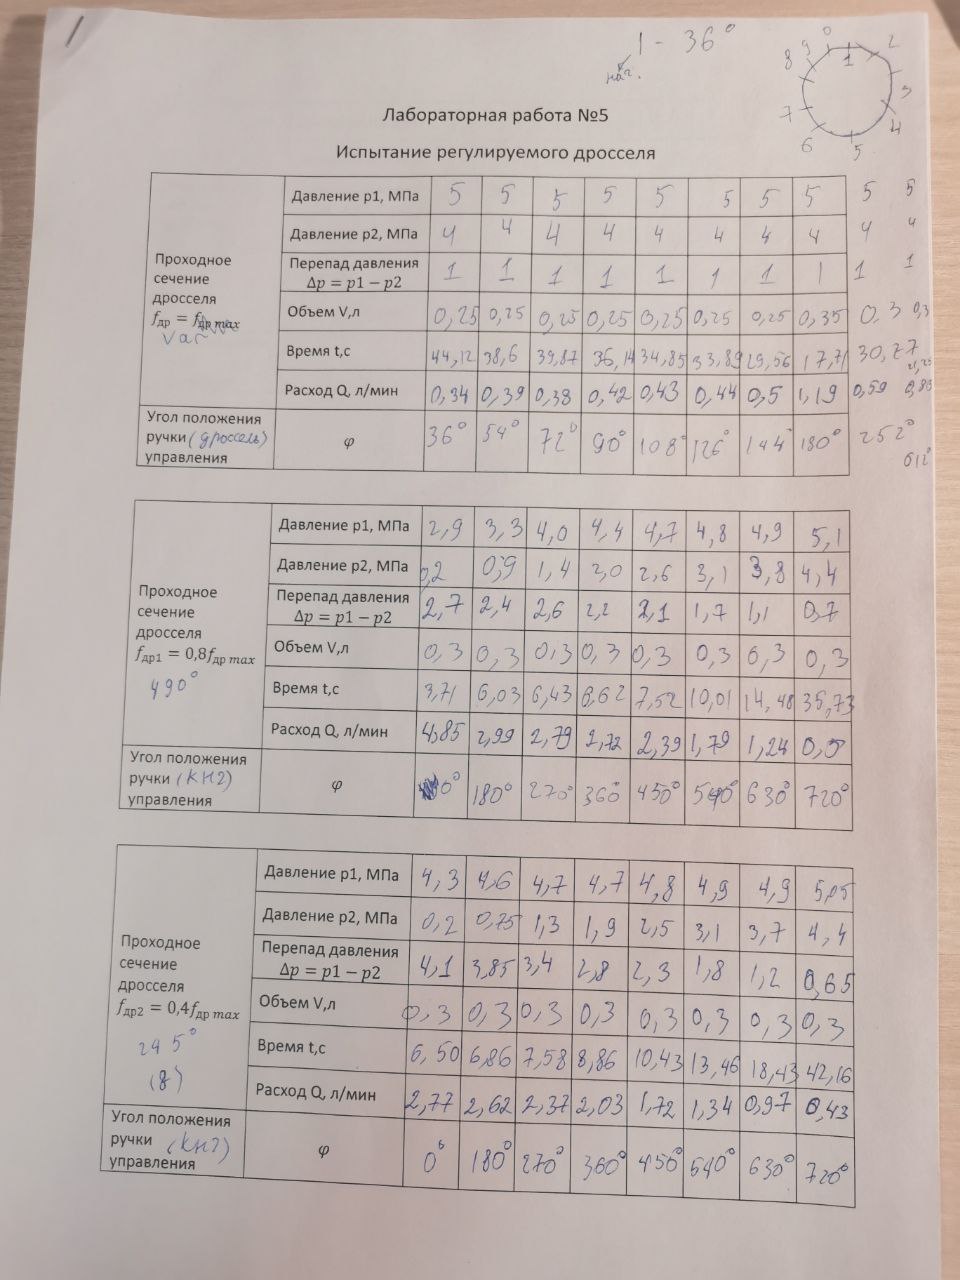 1 - 36°
нач.
0 1 2 3 4 5 6 7 8 9
Лабораторная работа №5
Испытание регулируемого дросселя
Проходное сечение дросселя fдр = fдр max
Var
Давление p1, МПа 5 5 5 5 5 5 5 5 5 5
Давление p2, МПа 4 4 4 4 4 4 4 4 4 4
Перепад давления Δp = p1 − p2 1 1 1 1 1 1 1 1 1 1
Объем V,л 0,25 0,25 0,25 0,25 0,25 0,25 0,25 0,35 0,3 0,3
Время t,с 44,12 38,6 39,87 36,14 34,85 33,89 29,56 17,71 30,27
Расход Q, л/мин 0,34 0,39 0,38 0,42 0,43 0,44 0,5 1,19 0,59
Угол положения ручки (дроссель) управления φ 36° 54° 72° 90° 108° 126° 144° 180° 252°
612°
Проходное сечение дросселя fдр1 = 0,8fдр max
490°
Давление p1, МПа 2,9 3,3 4,0 4,4 4,7 4,8 4,9 5,1
Давление p2, МПа 0,2 0,9 1,4 2,0 2,6 3,1 3,8 4,4
Перепад давления Δp = p1 − p2 2,7 2,4 2,6 2,2 2,1 1,7 1,1 0,7
Объем V,л 0,3 0,3 0,3 0,3 0,3 0,3 0,3 0,3
Время t,с 3,71 6,03 6,43 6,62 7,52 10,01 14,48 35,73
Расход Q, л/мин 4,85 2,99 2,79 2,72 2,39 1,79 1,24 0,5
Угол положения ручки (КН2) управления φ 0° 180° 270° 360° 450° 540° 630° 720°
Проходное сечение дросселя fдр2 = 0,4fдр max
245°
(8)
Давление p1, МПа 4,3 4,6 4,7 4,7 4,8 4,9 4,9 5,05
Давление p2, МПа 0,2 0,75 1,3 1,9 2,5 3,1 3,7 4,4
Перепад давления Δp = p1 − p2 4,1 3,85 3,4 2,8 2,3 1,8 1,2 0,65
Объем V,л 0,3 0,3 0,3 0,3 0,3 0,3 0,3 0,3
Время t,с 6,50 6,86 7,58 8,86 10,43 13,46 18,43 42,16
Расход Q, л/мин 2,77 2,62 2,37 2,03 1,72 1,34 0,97 0,43
Угол положения ручки (КН2) управления φ 0° 180° 270° 360° 450° 540° 630° 720°